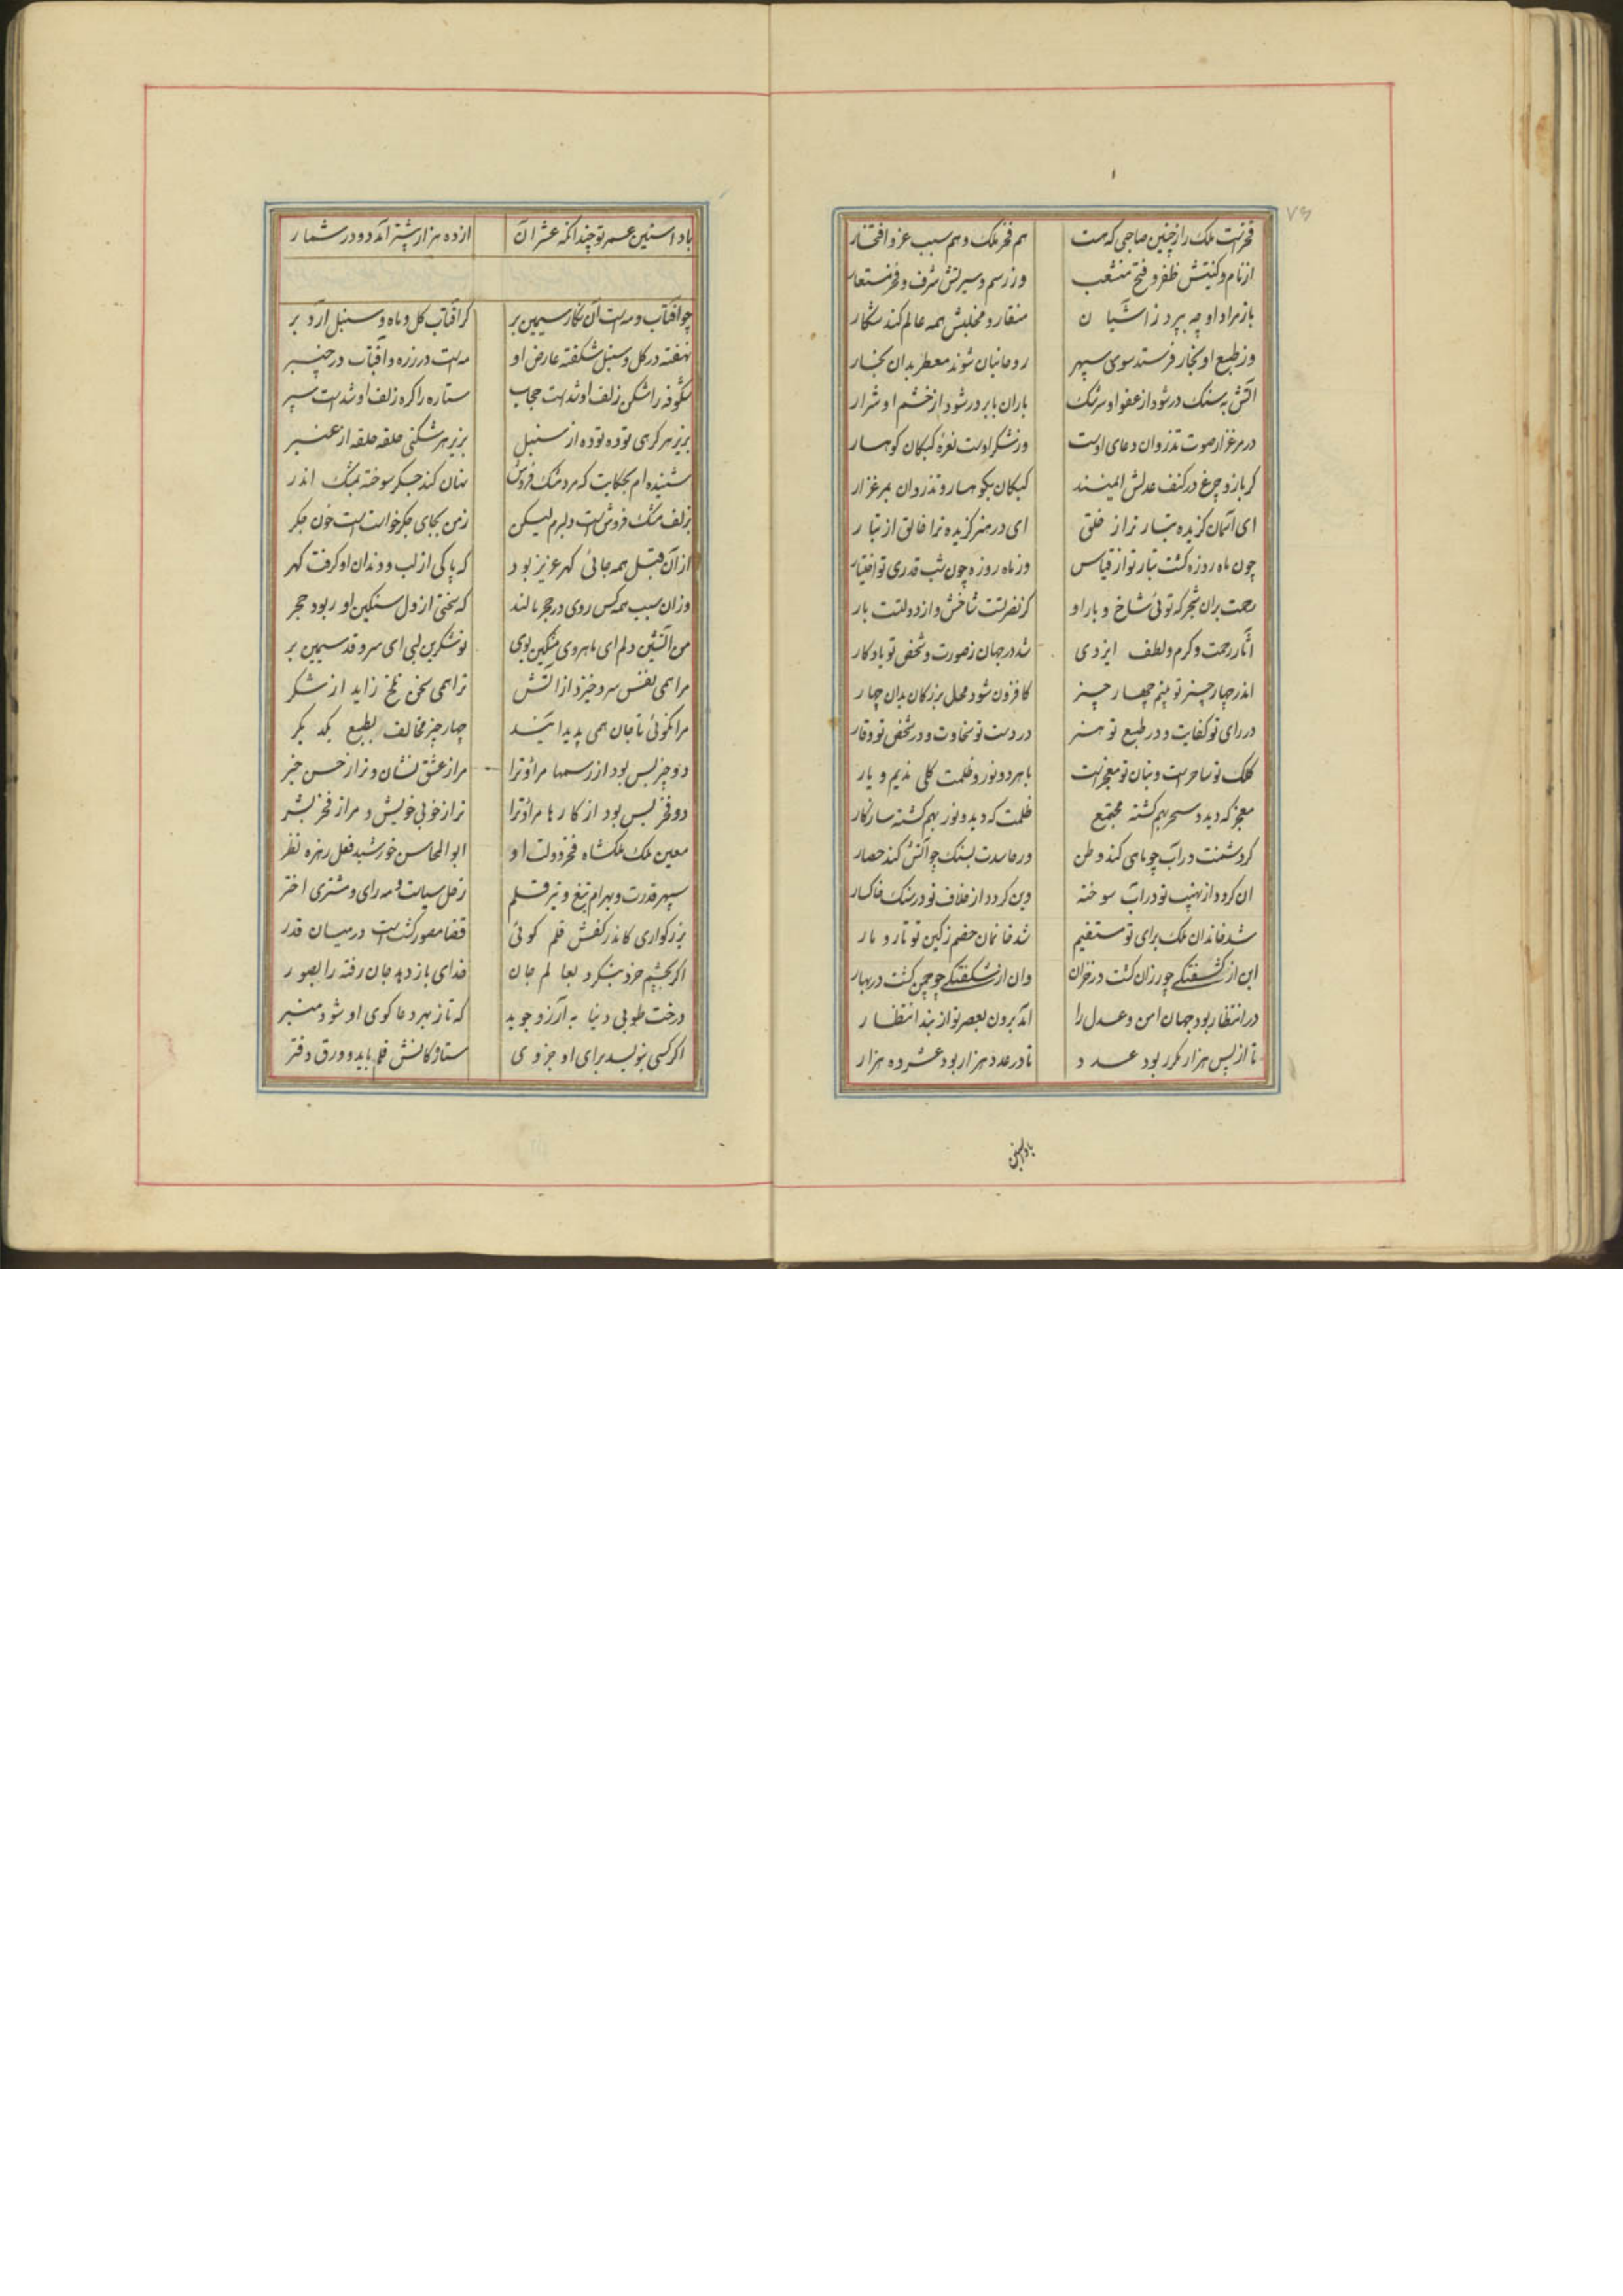 ۷۶
فخرست ملک را ز چنین صاحبی که هست هم فخر ملک و هم سبب عز و افتخار
از نام و کنیتش ظفر و فتح منشعب وز رسم و سیرتش شرف و فخر مستعار
باز مراد او چو بپرد ز آشیان منقار و مخلبش همه عالم کند شکار
وز طبع او بخار فرستد سوی سپهر روحانیان شوند معطر بدان بخار
آتش به سنک در شود از عفو او سرشک باران بابر در شود از خشم او شرار
در مرغزار صوت تذروان دعای اوست وز شکر اوست نعره کبکان کوهسار
کر باز و چرغ در کنف عدلش ایمنند کبکان بکوهسار و تذروان بمرغزار
ای آسمان کزیده تبار ترا ز خلق ای در هنر کزیده ترا خالق از تبار
چون ماه روزه کشت تبار تو از قیاس وز ماه روزه چون شب قدری تو اختیار
رحمت بران شجر که توئی شاخ و بار او کز نصرتست شاخش و از دولتت بار
آثار رحمت و کرم و لطف ایزدی شد در جهان ز صورت و شخص تو یادکار
اندر چهار چیز تو بینم چهار چیز کافزون شود محل بزرکان بدان چهار
در رای تو کفایت و در طبع تو هنر در دست تو سخاوت و در شخص تو وقار
کلک تو ساحرست و بنان تو معجزست با هر دو نور و ظلمت کلی ندیم و یار
معجز که دید و سحر بهم کشته مجتمع ظلمت که دید و نور بهم کشته سازکار
کر دشمنت در آب چو ماهی کند وطن ور حاسدت بسنک چو آتش کند حصار
ان کردد از نهیب تو در آب سوخته وین کردد از خلاف تو در سنک خاکسار
شد خاندان ملک برای تو مستقیم شد خانمان خصم ز کین تو تار و مار
این از کشفتکی چو رزان کشت در خزان وان از شکفتکی چو چمن کشت در بهار
در انتظار بود جهان امن و عدل را آمد برون بعصر تو از بند انتظار
تا از پس هزار مکرر بود عدد تا در عدد هزار بود عشر ده هزار
باد اسنین
باد اسنین عمر تو چندانکه عشر آن از ده هزار بیشتر آمد دو در شمار
چو آفتاب و مه است آن نکار سیمین بر کر آفتاب کل و ماه و سنبل آرد بر
نهفته در کل و سنبل شکفته عارض او مه است در زره و آفتاب در چنبر
شکوفه را شکن زلف او شدست حجاب ستاره را کره زلف او شدست سپر
بزیر هر کرهی توده توده از سنبل بزیر هر شکنی حلقه حلقه از عنبر
شنیده‌ام بحکایت که مرد مشک فروش نهان کند جکر سوخته بمشک اندر
بزلف مشک فروش است دلبرم لیکن ز من بجای جکر خواست است خون جکر
از آن قبل همه جائی کهر عزیز بود که پاکی از لب و دندان او کرفت کهر
وزان سبب همه کس روی در حجر مالند که سختی از دل سنکین او ربود حجر
من آتشین دلم ای ماهروی مشکین بوی تو شکرین لبی ای سرو قد سیمین بر
مرا همی نفس سرد خیزد از آتش ترا همی سخن تلخ زاید از شکر
مرا نکوئی تا جان همی پدید آیند چهار چیز مخالف بطبع یکدیکر
دو چیز بس بود از رسمها مرا و ترا مرا ز عشق نشان و ترا ز حسن خبر
دو فخر بس بود از کارها مرا و ترا ترا ز خوبی خویش و مرا ز فخر بشر
معین ملک ملکشاه فخر دولت او ابوالمحاسن خورشید فعل زهره نظر
سپهر قدرت و بهرام تیغ و تیر قلم زحل سیاست و مه رای و مشتری اختر
بزرکواری کاندر کفش قلم کوئی قضا مصور کشتست در میان قدر
اکر بچشم خرد بنکرد بعالم جان خدای باز دهد جان رفته را بصور
درخت طوبی دنیا به آرزو جوید که تا ز بهر دعاکوی او شود منبر
اکر کسی بنویسد برای او جزوی ستارکانش قلم باید و ورق دفتر